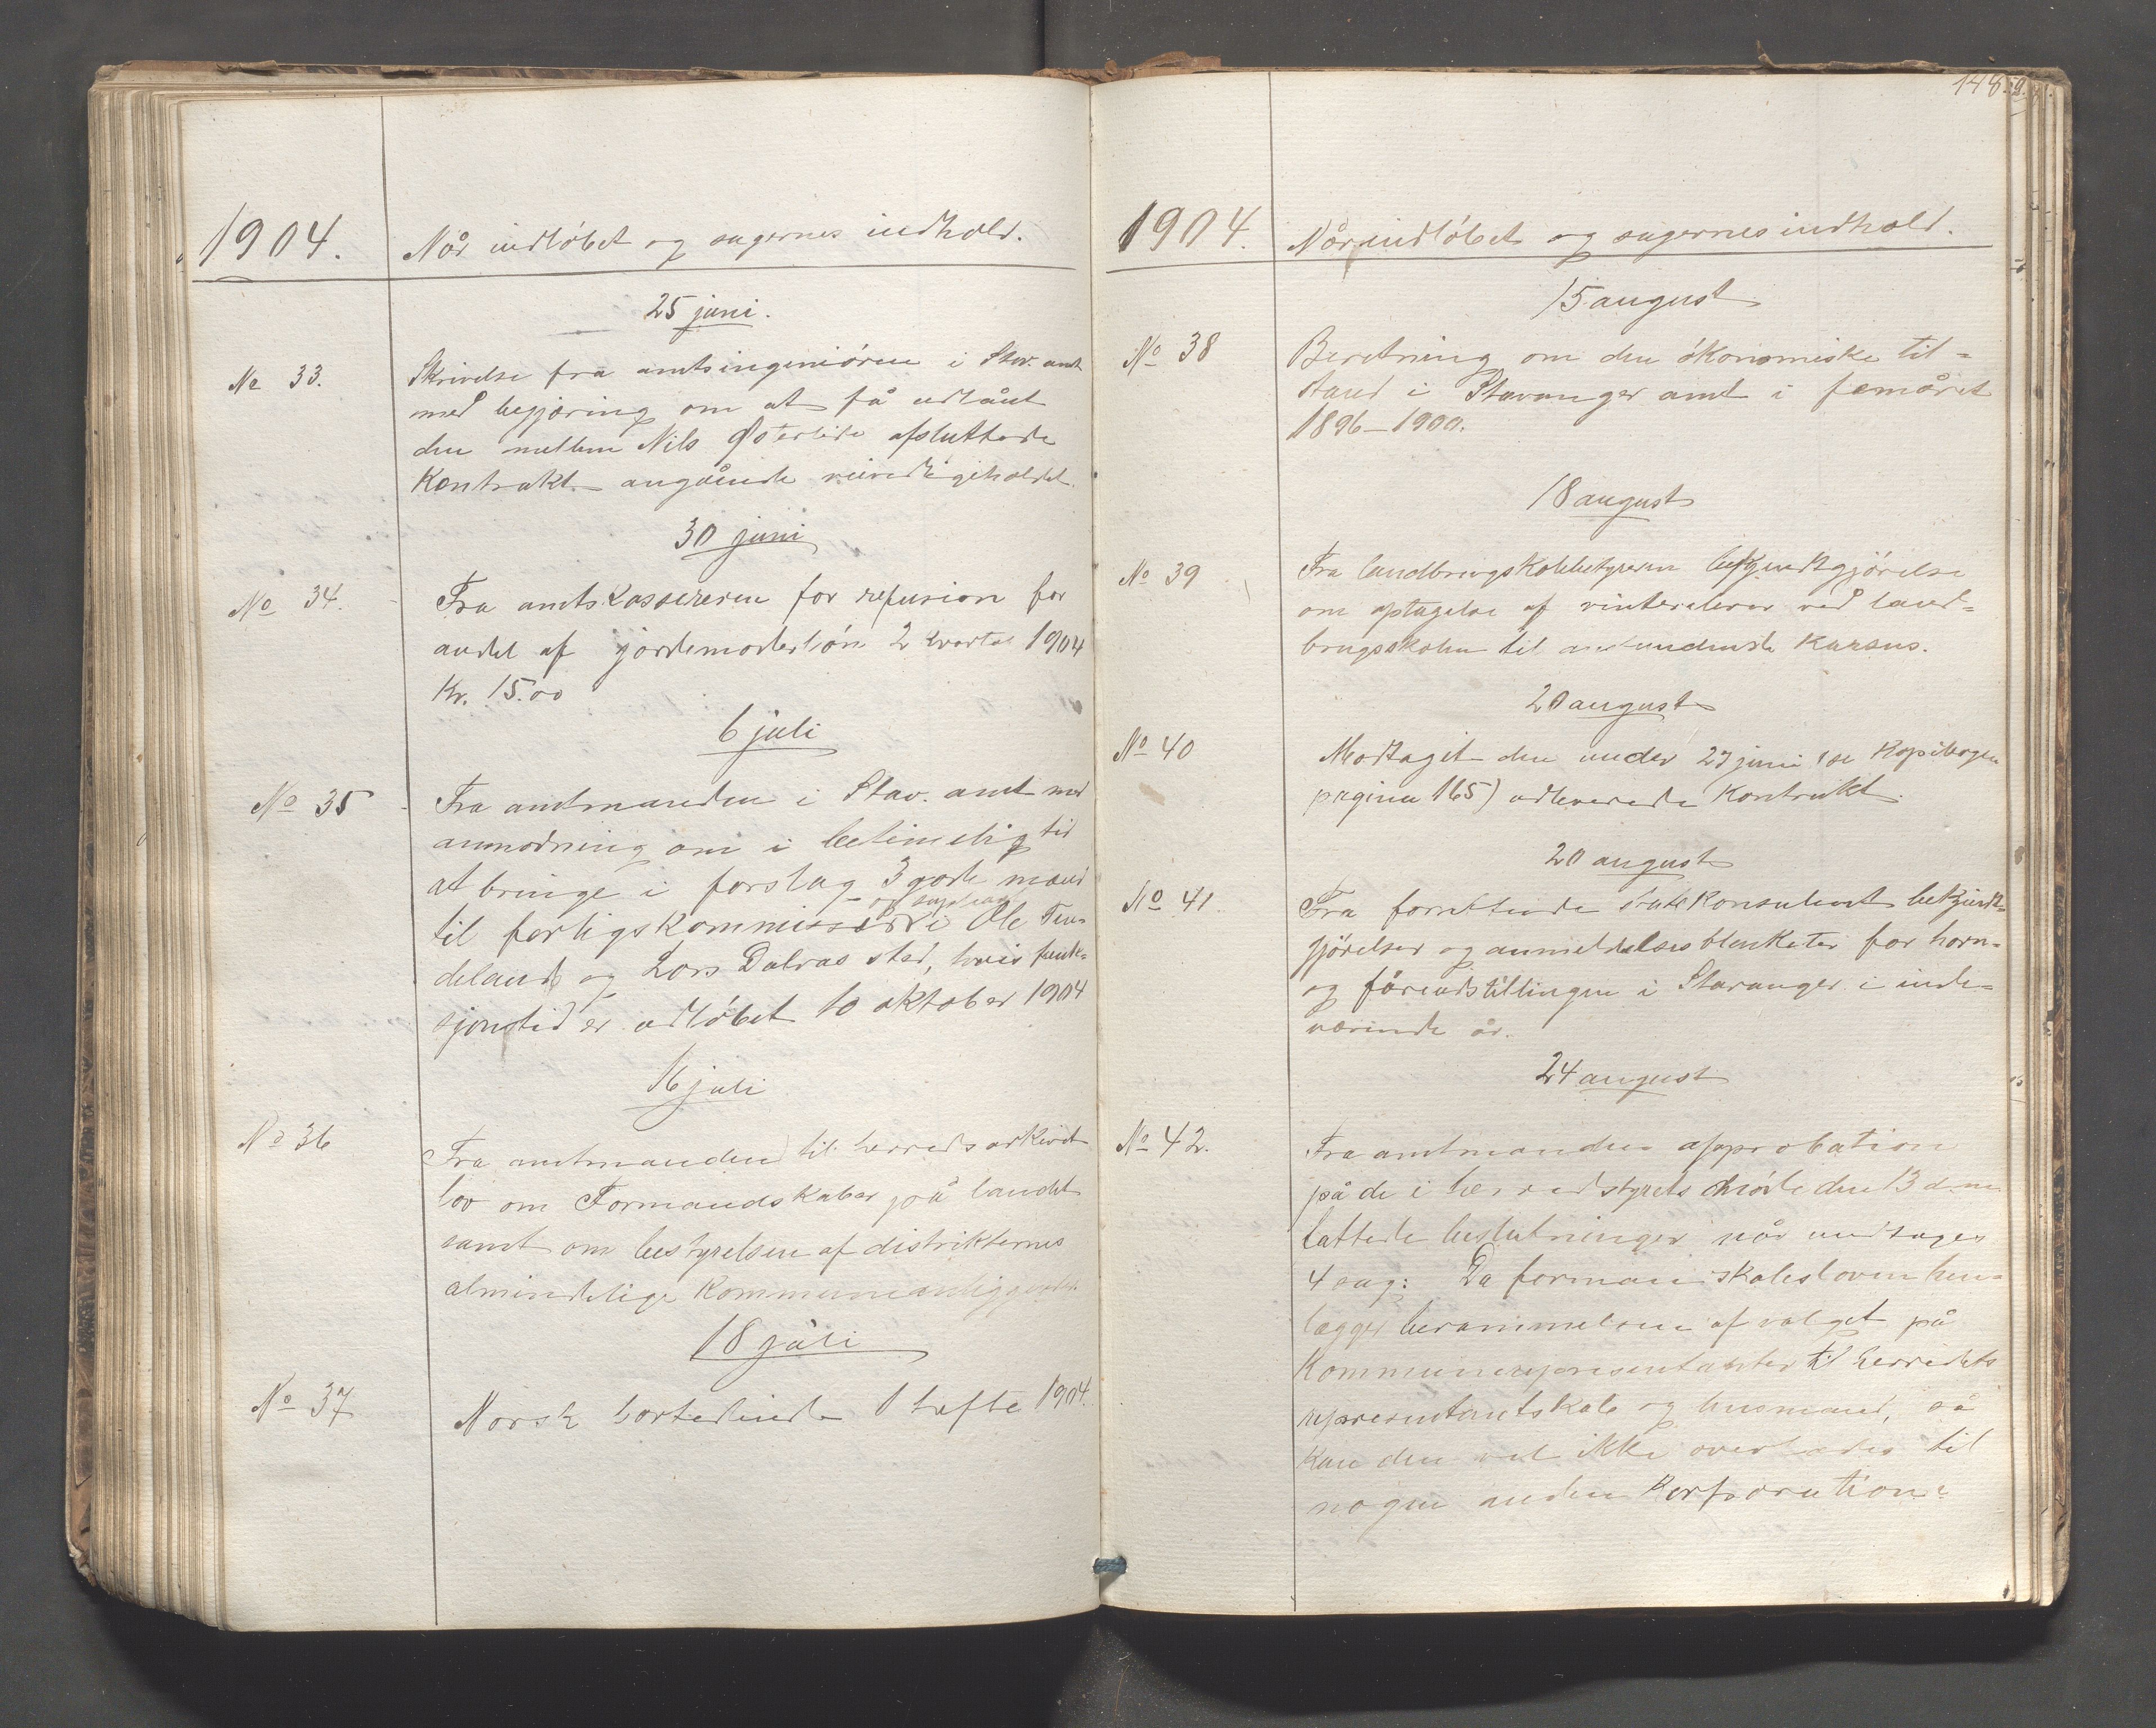 1904.
Når indløbet og sagernes indhold.
25 juni.
No 33.
Skrivelse fra amtsingeniøren i Stav. amt
med begjæring om at få udlånt
den mellem Nils Østerlide afsluttede
Kontrakt angående veivedligeholdet.
30 juni
No 34.
Fra amtskassereren for refusion for
andel af jordemoderløn 2 kvartal 1904
Kr. 15.00
6 juli
No 35
Fra amtmanden i Stav. amt med
anmodning om i betimelig tid
at bringe i forslag 3 gode mænd
til forligskommissær i Ole
deland og Lars Dalvas sted, hvis funk-
sjonstid er udløbet 10 oktober 1904
16 juli
No 36
Fra amtmanden til herredsarkivet
lov om Formandskaber på landet
samt om bestyrelsen af distrikternes
almindelige Kommuneanliggender.
18 juli
No 37
Norsk lovtidende 1 hefte 1904.
148.
1904.
Når indløbet og sagernes indhold.
15 august
No 38
Beretning om den økonomiske til-
stand i Stavanger amt i femåret
1896-1900.
18 august
No 39
Fra landbrugskolebestyreren bekjendtgjørelse
om optagelse af vinterelever ved land-
brugsskolen til kursus.
20 august
No 40
Modtaget den under 27 juni (se Kopibogen
pagina 165) udleverede Kontrakt.
20 august
No 41
Fra forrettende statskonsulent bekjendt-
gjørelser og anmeldelsesblanketter for horn-
og fåreudstillingen i Stavanger i inde-
værende år.
24 august
No 42.
Fra amtmanden approbation
på de i herredstyrets møde den 13 d.m.
fattede beslutninger når undtages
4 sag: Da formandskabsloven hen-
lægger berammelsen af valget på
Kommunerepresentanter til herredets
representantskab og husmænd, så
kan den vel ikke overlades til
nogen anden Korporation.